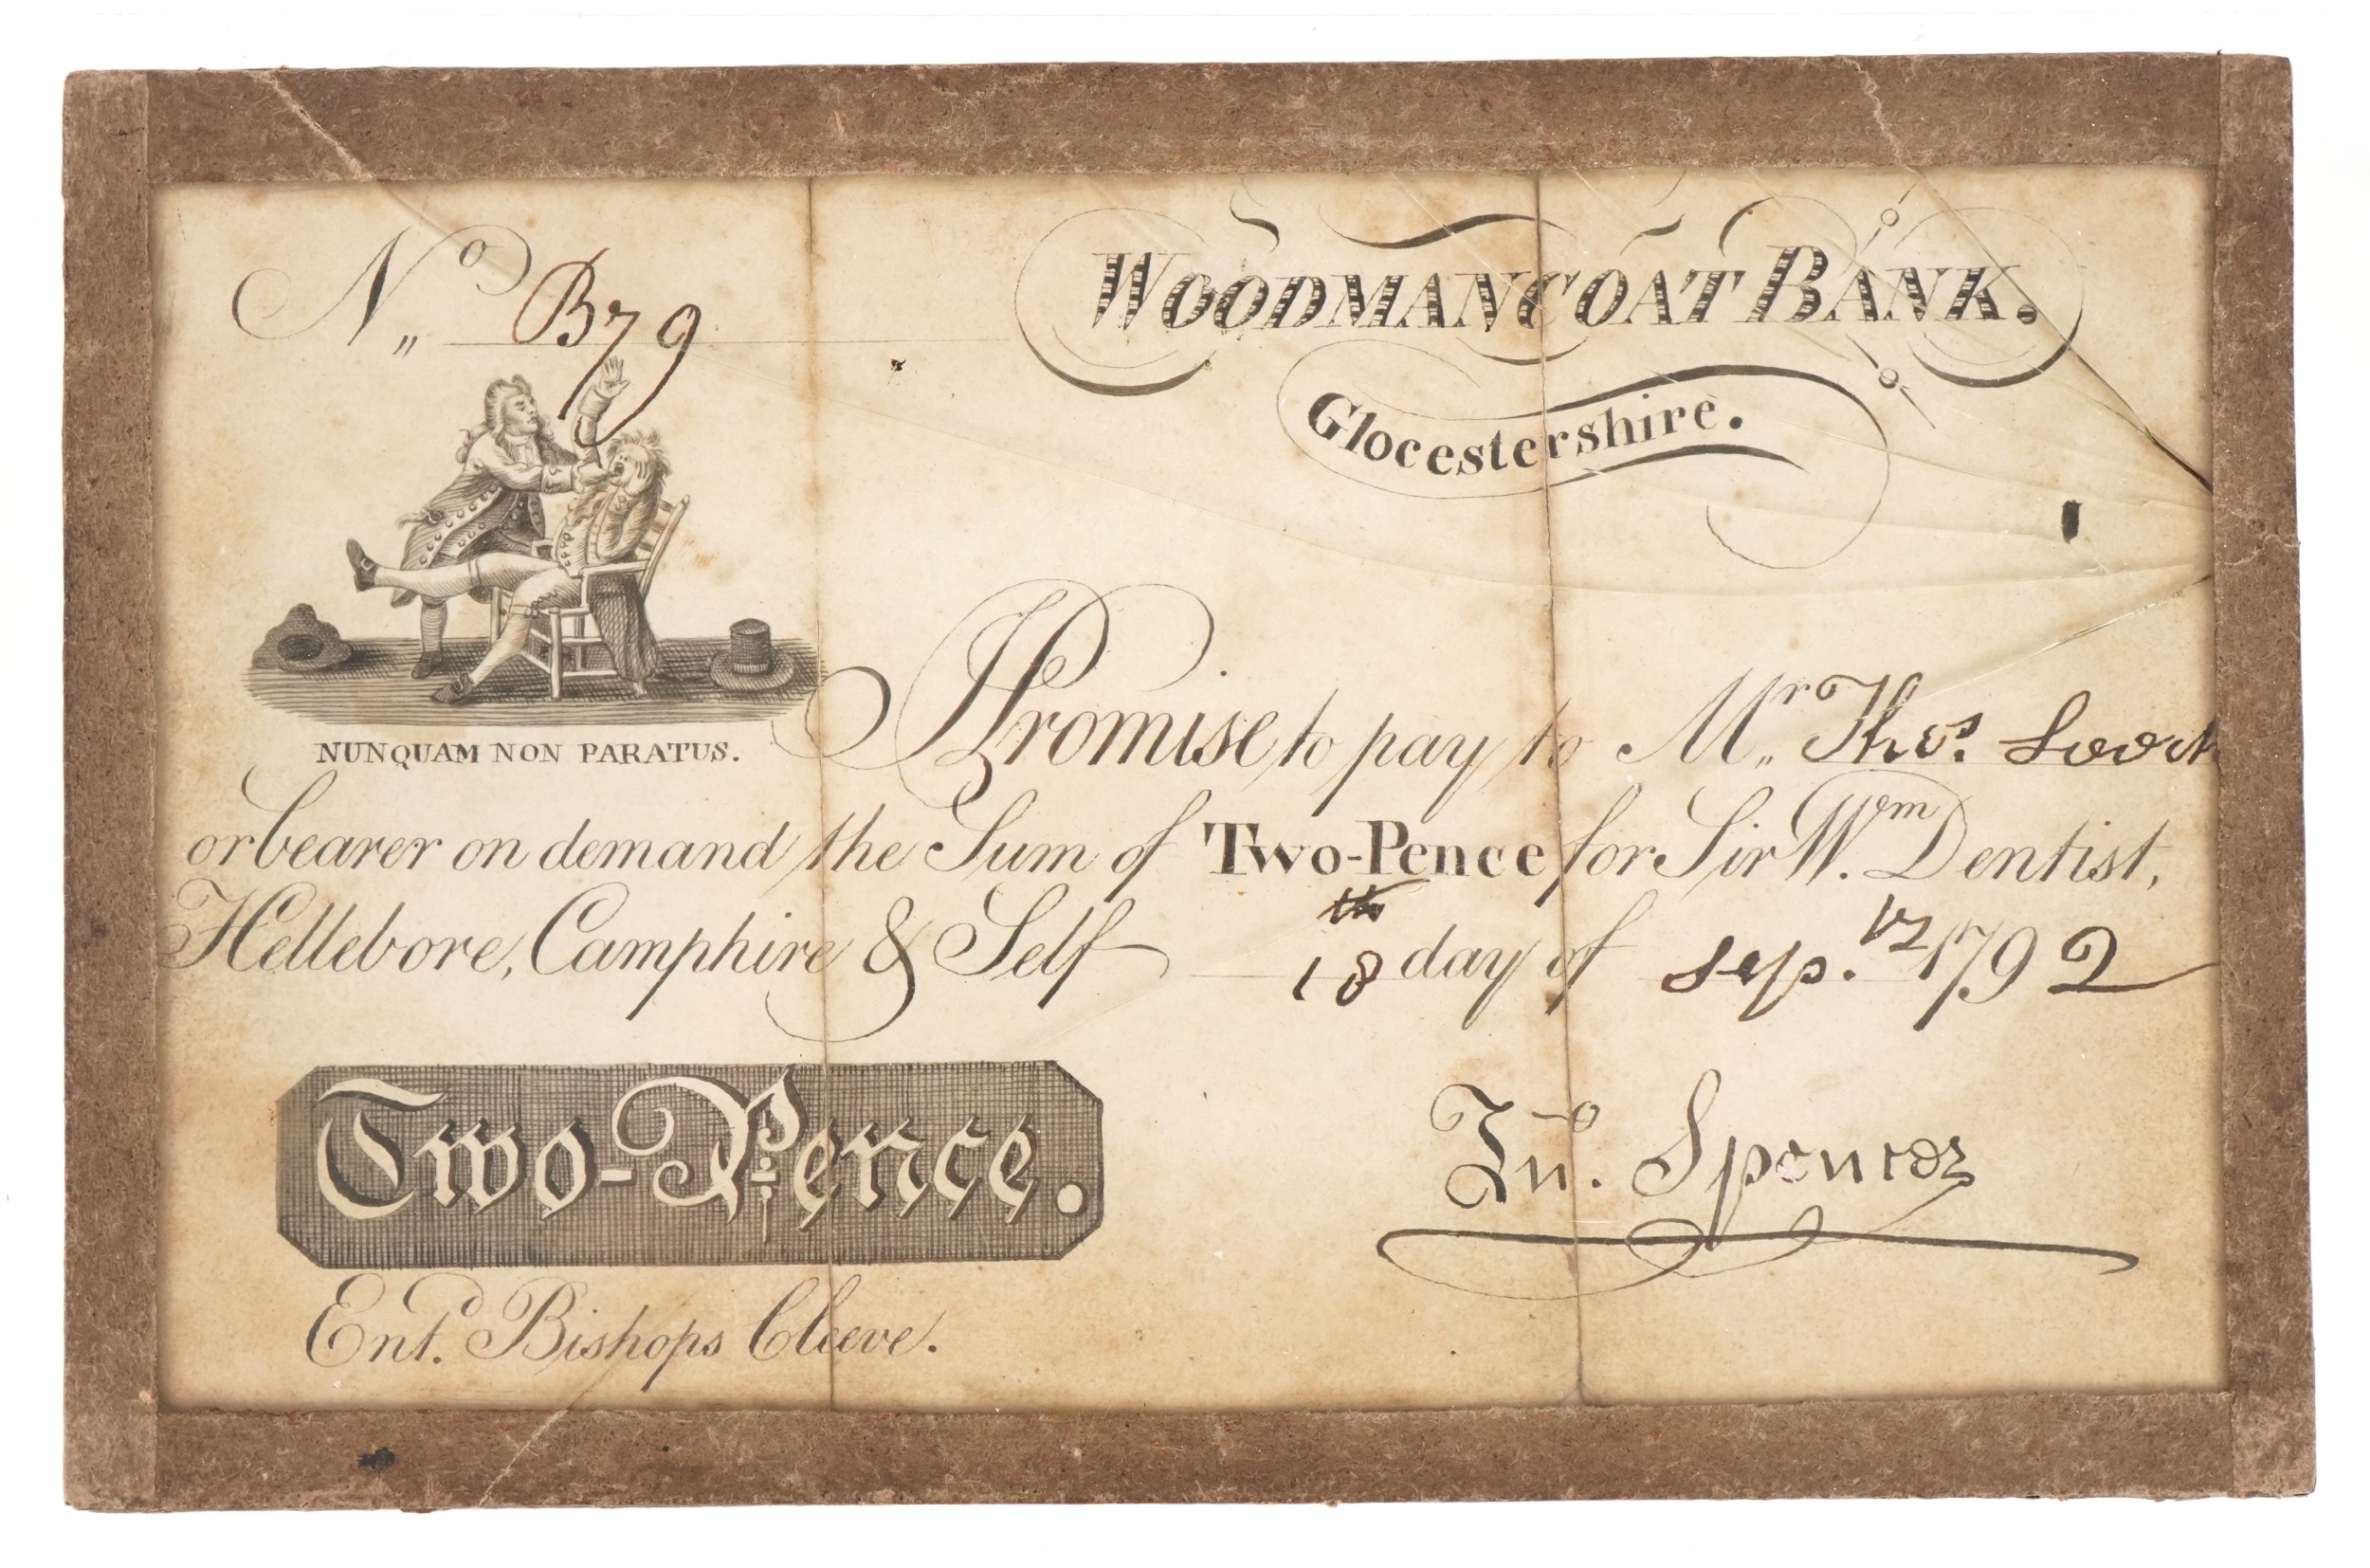 No B79
WOODMANCOAT BANK.
Glocestershire.
NUNQUAM NON PARATUS.
I Promise to pay to Mr. Thos.
or bearer on demand the Sum of Two-Pence for Sir Wm. Dentist,
Hellebore, Camphire & Self 18th day of Sep. 1792
Two-Pence.
Jno. Spencer
Entd. Bishops Cleeve.